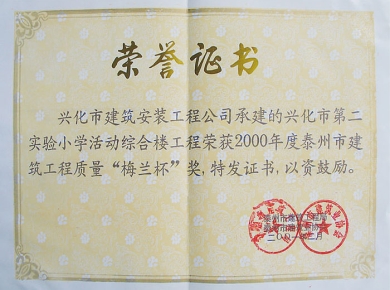 荣誉证书
兴化市建筑安装工程公司承建的兴化市第二
实验小学活动综合楼工程荣获2000年度泰州市建
筑工程质量“梅兰杯”奖,特发证书,以资鼓励。
泰州市建筑工程局
二〇〇一年三月